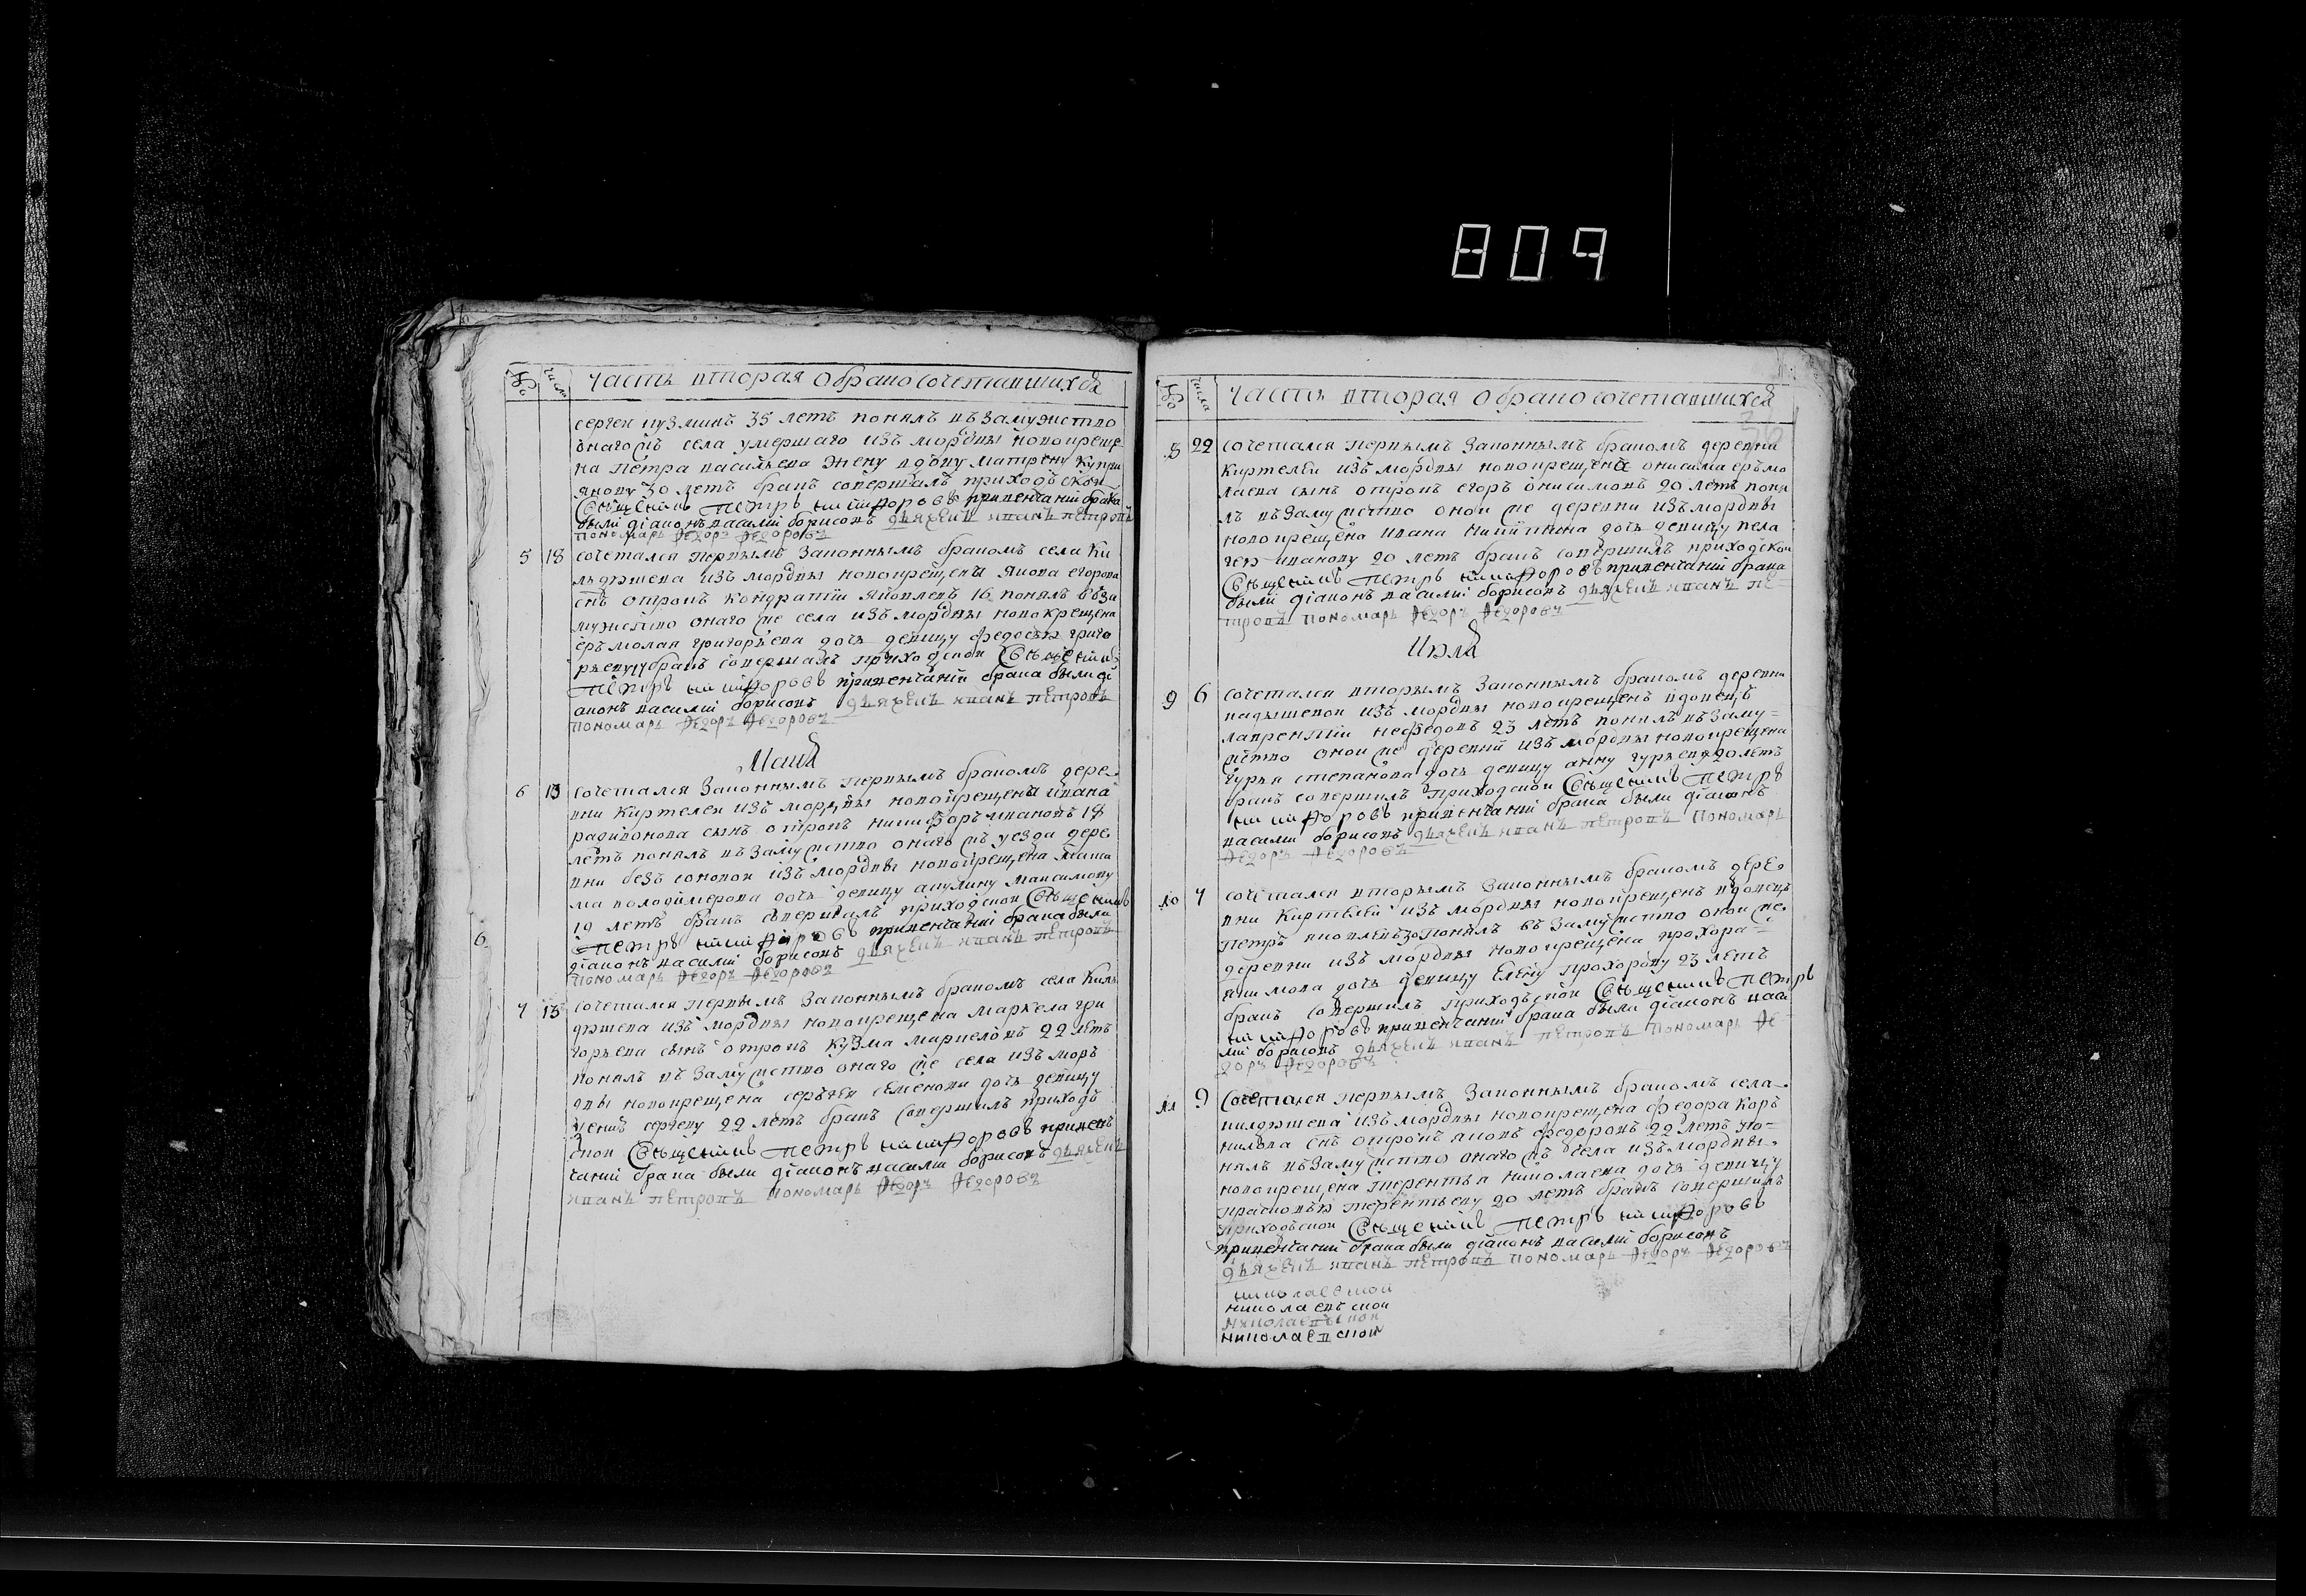 809
№
числ
Часть вторая о бракосочетавшихся
сергей кузминъ 35 летъ понялъ въ замужство
онаго жъ села умершаго изъ мордвы новокреще
на петра васильева жену вдову матрену купри
янову 30 летъ бракъ совершалъ приходской
Священникъ Петръ никифоровъ привенчаніи брака
были діаконъ василій борисовъ дьячекъ иванъ петровъ
пономарь Федоръ Федоровъ
5 18 сочетался первымъ законнымъ бракомъ села Ки
льдюшева изъ мордвы новокрещена якова егорова
снъ отрокъ кондратіи яковлевъ 16 понялъ въ за
мужство онаго же села изъ мордвы новокрещена
ермолая григорьева дочь девицу федосью григо
рьевну бракъ совершалъ приходской Священникъ
Петръ никифоровъ привенчаніи брака были ді
аконъ василій борисовъ дьячекъ иванъ петровъ
пономарь Федоръ Федоровъ
Маия
6 13 сочетался законнымъ первымъ бракомъ дере
вни Киртелей изъ мордвы новокрещена ивана
радивонова сынъ отрокъ никифоръ ивановъ 18
летъ понялъ въ замужство онагожъ уезда дере
вни безъ соновой изъ мордвы новокрещена макси
ма володимерова дочь девицу акулину максимову
19 летъ бракъ совершилъ приходской Священникъ
Петръ никифоровъ привенчаніи брака были
діаконъ василій борисовъ дьячекъ иванъ петровъ
пономарь Федоръ Федоровъ
6
7 13 сочетался первымъ законнымъ бракомъ села Киль
дюшева изъ мордвы новокрещена маркела гри
горьева сынъ отрокъ кузма маркеловъ 22 летъ
понялъ въ замужство онаго же села изъ морь
двы новокрещена сергея семенова дочь девицу
сергеву 22 летъ бракъ совершилъ приходъ
ской Священникъ Петръ никифоровъ привень
чаніи брака были діаконъ василій борисовъ дьячекъ
иванъ петровъ пономарь Федоръ Федоровъ
№
числа
Часть вторая о бракосочетавшихся
36
8 22 сочетался первымъ законнымъ бракомъ деревни
Киртелей изъ мордвы новокрещена онисима ермо
лаева сынъ отрокъ егоръ онисимовъ 20 летъ поня
лъ въ замужство оной же деревни изъ мордвы
новокрещена ивана никитина дочь девицу пела
гею иванову 20 летъ бракъ совершилъ приходской
Священникъ Петръ никифоровъ привенчаніи брака
были діаконъ василій борисовъ дьячекъ иванъ пе
тровъ пономарь Федоръ Федоровъ
Июля
9 6 сочетался вторымъ законнымъ бракомъ деревни
кадышевой изъ мордвы новокрещенъ вдовецъ
лаврентіи нефедовъ 23 летъ понялъ въ заму
жство оной же деревни изъ мордвы новокрещена
гурья степанова дочь девицу анну гурьеву 20 летъ
бракъ совершилъ приходской Священникъ Петръ
никифоровъ привенчаніи брака были діаконъ
василій борисовъ дьячекъ иванъ петровъ пономарь
Федоръ Федоровъ
10 7 сочетался вторымъ законнымъ бракомъ дере
вни Киртелей изъ мордвы новокрещенъ вдовецъ
петръ яковлевъ 30 понялъ въ замужство оной же
деревни изъ мордвы новокрещена прохора
якимова дочь девицу Елену прохорову 23 летъ
бракъ совершилъ приходской Священникъ Петръ
никифоровъ привенчаніи брака были діаконъ васи
лій борисовъ дьячекъ иванъ петровъ пономарь Фе
доръ Федоровъ
11 9 Сочетался первымъ законнымъ бракомъ села
килдюшева изъ мордвы новокрещена федора кор
нилова снъ отрокъ яковъ федоровъ 22 летъ по
нялъ въ замужство онагожъ села изъ мордвы
новокрещена терентья николаева дочь девицу
прасковью терентьеву 20 летъ бракъ совершилъ
приходской Священникъ Петръ никифоровъ
привенчаніи брака были діаконъ василій борисовъ
дьячекъ иванъ петровъ пономарь Федоръ Федоровъ
николаевской
николаевской
николаевской
николаевской